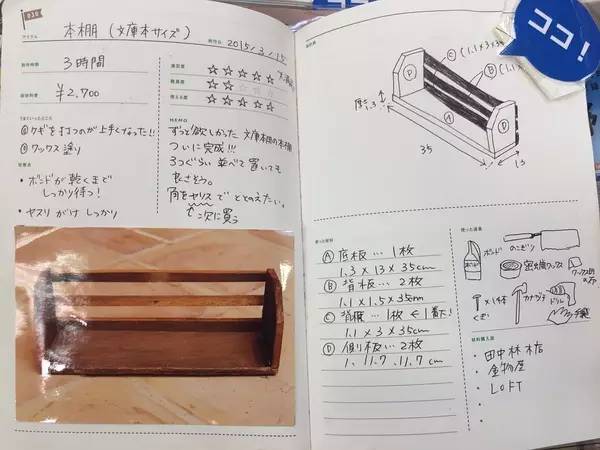 030
本棚（文庫本サイズ）
2015/3/15
3時間
¥2,700
☆☆☆☆☆
☆☆☆☆☆
☆☆☆☆☆
うまくいったところ
ⓐ クギを打つのが上手くなった!!
ⓑ ワックス塗り
反省点
・ボンドが乾くまで
しっかり待つ!
・ヤスリがけ しっかり
MEMO
ずっと欲しかった 文庫本用の本棚
ついに完成!!!
3つぐらい 並べて置いても
良さそう。
角をヤスリで ととのえたい。
次に買う
ココ!
Ⓒ (1.1×3×35
Ⓑ (1.1
Ⓓ
Ⓐ
Ⓓ
厚 1.3
35
13
使った材料
Ⓐ 底板…1枚
1.3×13×35cm
Ⓑ 背板…2枚
1.1×1.5×35cm
Ⓒ 背板…1枚 ← 1番下!
1.1×3×35cm
Ⓓ 側板…2枚
1.11.7.11.7cm
使った道具
ボンド
のこぎり
蜜蝋ワックス
×14本
くぎ
カナヅチ
手袋
材料購入店
・田中林木店
・金物屋
・LOFT